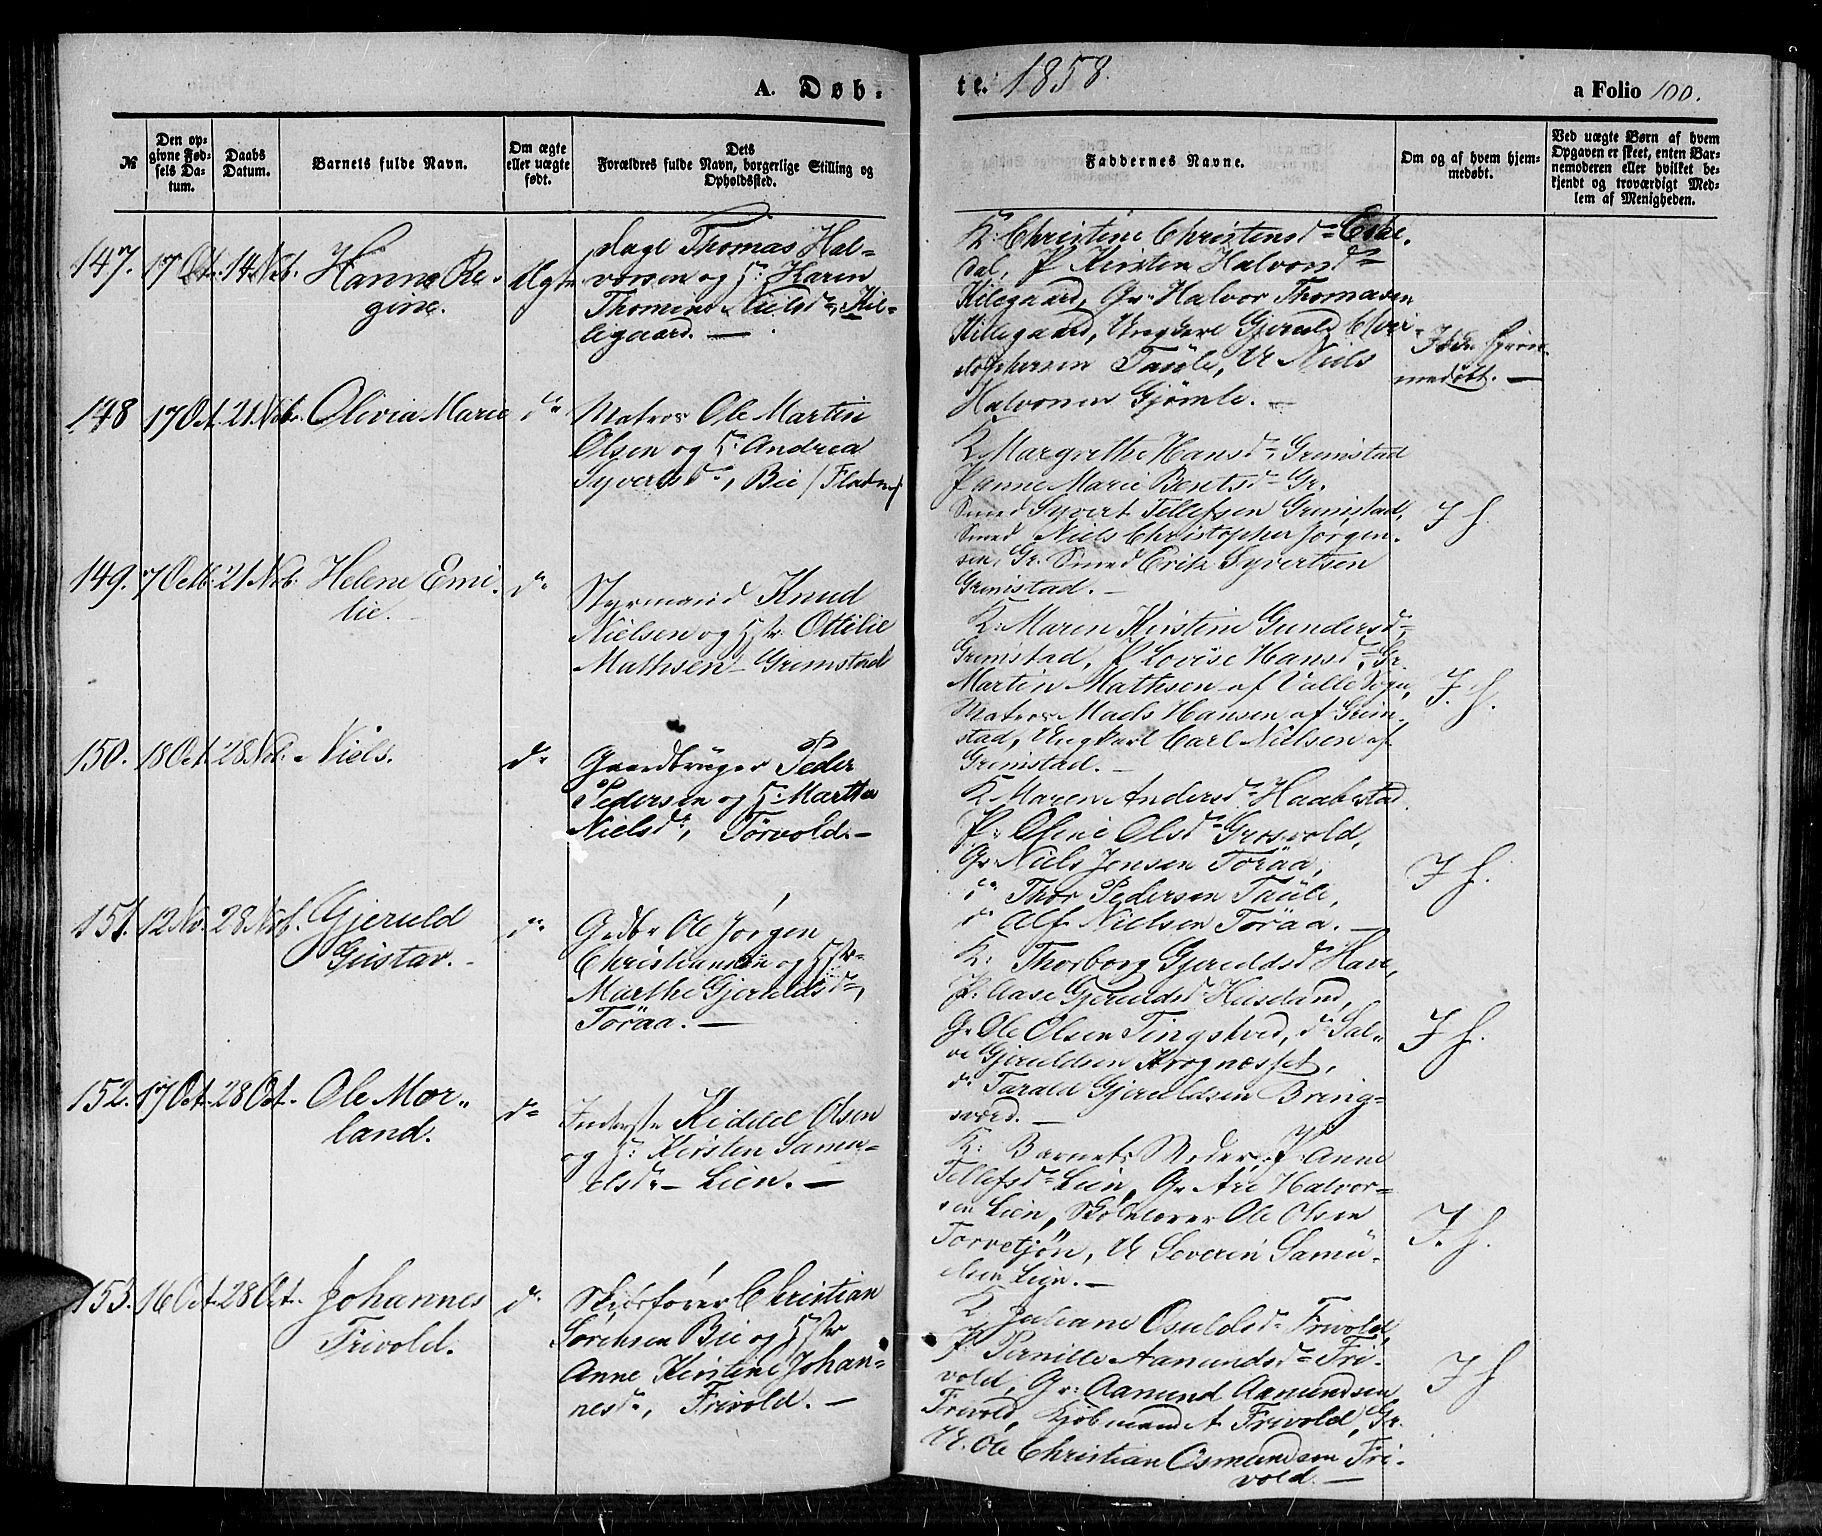 A. Døb-
te. 1858.
a Folio 100.
№
Den op-
givne Fød-
sels Da-
tum.
Daabs
Datum.
Barnets fulde Navn.
Om ægte
eller uægte
født.
Dets
Forældres fulde Navn, borgerlige Stilling og
Opholdssted.
Faddernes Navne.
Om og af hvem hjem-
medøbt.
Ved uægte Børn af hvem
Opgaven er skeet, enten Bar-
nemoderen eller hvilket be-
kjendt og troværdigt Med-
lem af Menigheden.
147. 17 Oct. 14 Nob. Hanne Re-
gine.
Thomas Hal-
vorsen og H: Karen
Thomine Nielsd., Kil-
legaard. —
K: Christine Christensd= Eske-
dal, P Kirsten Halvorsd=
Killegaard, Gr: Halvor Thomasen
Killegaard, Ungkarl Gjeruld Chri-
stophersen Taule, U Niels
Halvorsen Gjømle. —
Ikke hjem-
medøbt. —
148 17 Oct. 21 Nob. Olivia Marie do
Matros Ole Martin
Olsen og H: Andrea
Syvertsd=, Bie (Fladen)
K Margrethe Hansd= Grimstad
P Anne Marie Bentsd= Gr.
Smed Syvert Tellefsen Grimstad,
Smed Niels Christopher Jørgen-
sen, Gr. Smed Erik Syvertsen
Grimstad. —
I h.
149. 7 Octb. 21 Nob. Helene Emi-
lie. do
Styrmand Knud
Nielsen og Hstr Ottilie
Mathsen - Grimstad
K: Maren Kirstine Gundersd=
Grimstad, P Lovise Hansd=, Gr.
Martin Mathsen af Valle Sogn,
Matros Mads Hansen af Grim-
stad, Ungkarl Carl Nielsen af
Grimstad. —
I. h.
150. 18 Oct. 28 Nob. Niels. do
Gaardbruger Peder
Pedersen og H: Marthe
Nielsd=, Törvold. —
K Maren Andersd= Haabestad.
P: Oline Olsd= Grosvold,
Gr Niels Jensen Toräa,
do Thor Pedersen Taule,
do Alf Nielsen Toräa. —
I h.
151. 12 Nov. 28 Nob. Gjeruld
Gustav. do
Gudbr Ole Jørgen
Christiansen og Hstr
Marthe Gjeruldsd=,
Toräa. —
K: Thorborg Gjeruldsd Hare,
P: Aase Gjeruldsd Huseland,
Gr Ole Olsen Tingstved, do Sal-
ve Gjeruldsen Krognesset,
do Tarald Gjeruldsen Bring-
sværd. —
I h.
152. 17 Oct. 28 Oct. Ole Mor-
land. do
Inderst Kiddel Olsen
og H: Kirsten Samu-
elsd= Lien. —
K: Barnets Moder, P: Anne
Tellefsd= Lien, Gr Are Halvor-
sen Lien, Skolelærer Ole Olsen
Torvetjøn, U Severin Samu-
elsen Lien. —
I. h.
153. 16 Oct. 28 Oct. Johannes
Frivold. do
Skibsfører Christian
Sørensen Bie og Hstr
Anne Kirstine Johan-
nesd=, Frivold. —
K Juliane Osuldsd= Frivold,
P Pernille Aamundsd= Fri-
vold, Gr: Aamund Aamundsen
Frivold, Kjøbmand A Frivold, Gr.
U. Ole Christian Osmundsen Fri-
vold. —
I h